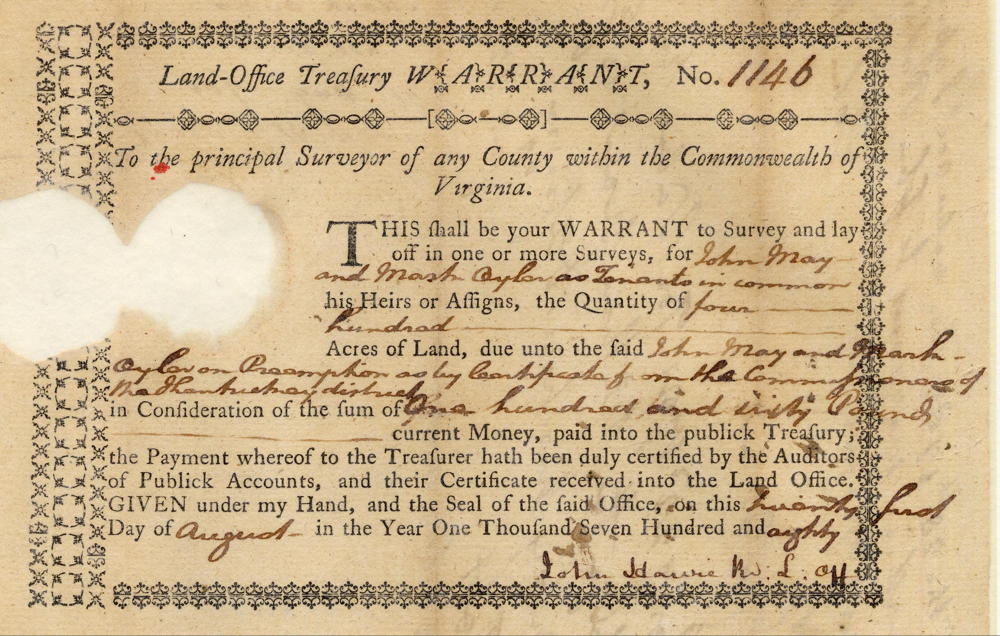 Land-Office Treaſury WARRANT, No. 1146
To the principal Surveyor of any County within the Commonwealth of
Virginia.
THIS ſhall be your WARRANT to Survey and lay
off in one or more Surveys, for John May
and Mark Oyler as Tenants in common
his Heirs or Aſſigns, the Quantity of four
hundred
Acres of Land, due unto the ſaid John May and Mark
Oyler on Preemption as by Certificate from the Commissioners of
the Kentuckey district
in Conſideration of the ſum of One hundred and sixty Pounds
current Money, paid into the publick Treaſury;
the Payment whereof to the Treaſurer hath been duly certified by the Auditors
of Publick Accounts, and their Certificate received into the Land Office.
GIVEN under my Hand, and the Seal of the ſaid Office, on this twenty first
Day of August in the Year One Thouſand Seven Hundred and eighty
John Harvie R. L. Off